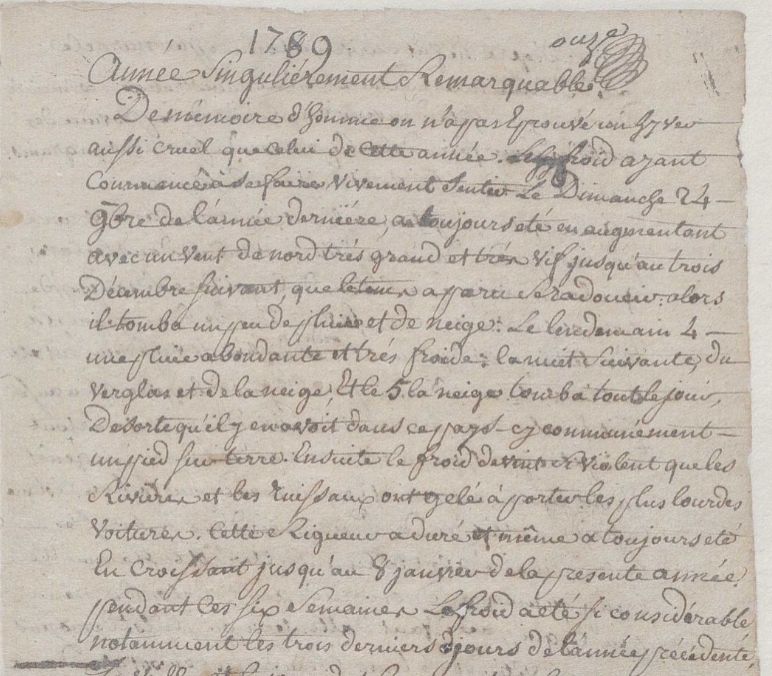 1789
onze
année singuliérement Remarquable.
De mémoire d'homme on n'a pas Eprouvé un hyver
aussi cruel que celui de cette année. Le froid ayant
Commencé à se faire vivement Sentir Le Dimanche 24
9bre de l'année derniére, a toujours eté en augmentant
avec un vent de nord trés grand et trés vif jusqu'au trois
Décembre suivant, que le tems a paru se radoucir: alors
il tomba un peu de pluie et de neige: Le lendemain 4
une pluie abondante et trés froide: la nuit suivante, du
verglas et de la neige, Et le 5 la neige tomba tout le jour,
De sorte qu'il y en avoit dans ce pays-cy communément
un pied sur terre. Ensuite le froid devint si violent que les
Riviéres et les Ruisseaux ont gelé à porter les plus lourdes
voitures. Cette Rigueur a duré et même a toujours eté
En croissant jusqu'au 8 janvier de la presente année.
pendant ces six Semaines Le froid a eté si considérable
notamment les trois derniers jours de l'année précédente,